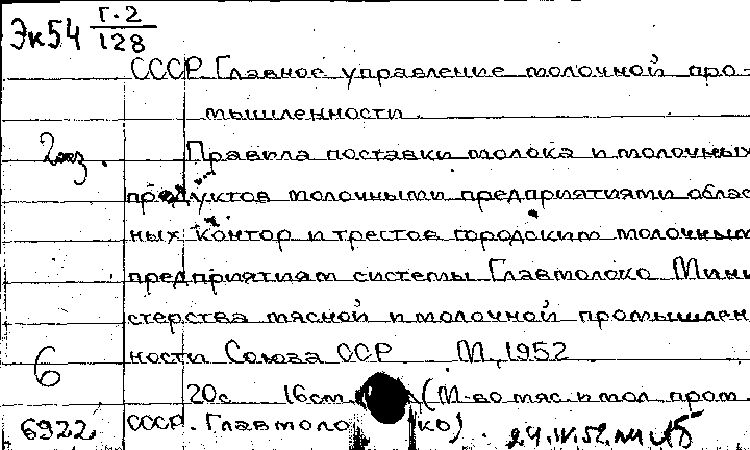 Эк54 Г.2/128
СССР. Главное управление молочной про-
мышленности.
2 экз.
Правила поставки молока и молочных
продуктов молочными предприятиями облас
ных контор и трестов городским молочным
предприятиям системы Главмолоко Мини
стерства мясной и молочной промышлен
ности Союза ССР. М, 1952
6
20с 16см (М-во мяс. и мол. пром.
6922 СССР. Главмоло ко).